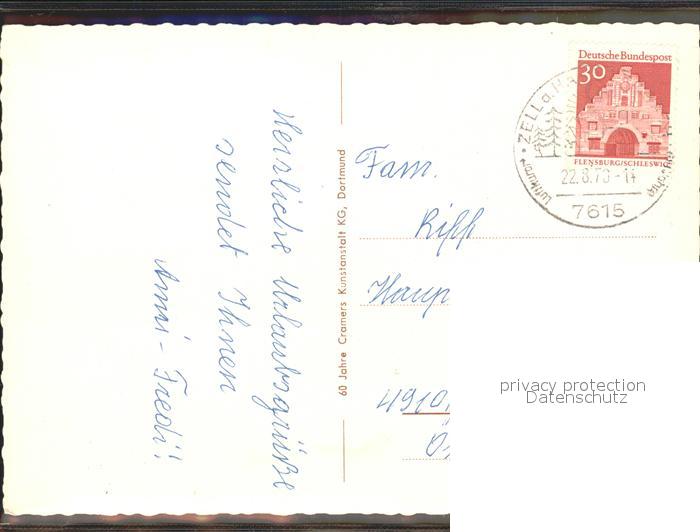 Herzliche Urlaubsgrüße
sendet Ihnen
Anni - Fredi!
60 Jahre Cramers Kunstanstalt KG, Dortmund
Deutsche Bundespost
30
FLENSBURG/SCHLESWIG
ZELL a. H
Luftkurort
22.8.70-14
7615
Fam.
Riff
Haup
4910
Ö
privacy protection
Datenschutz